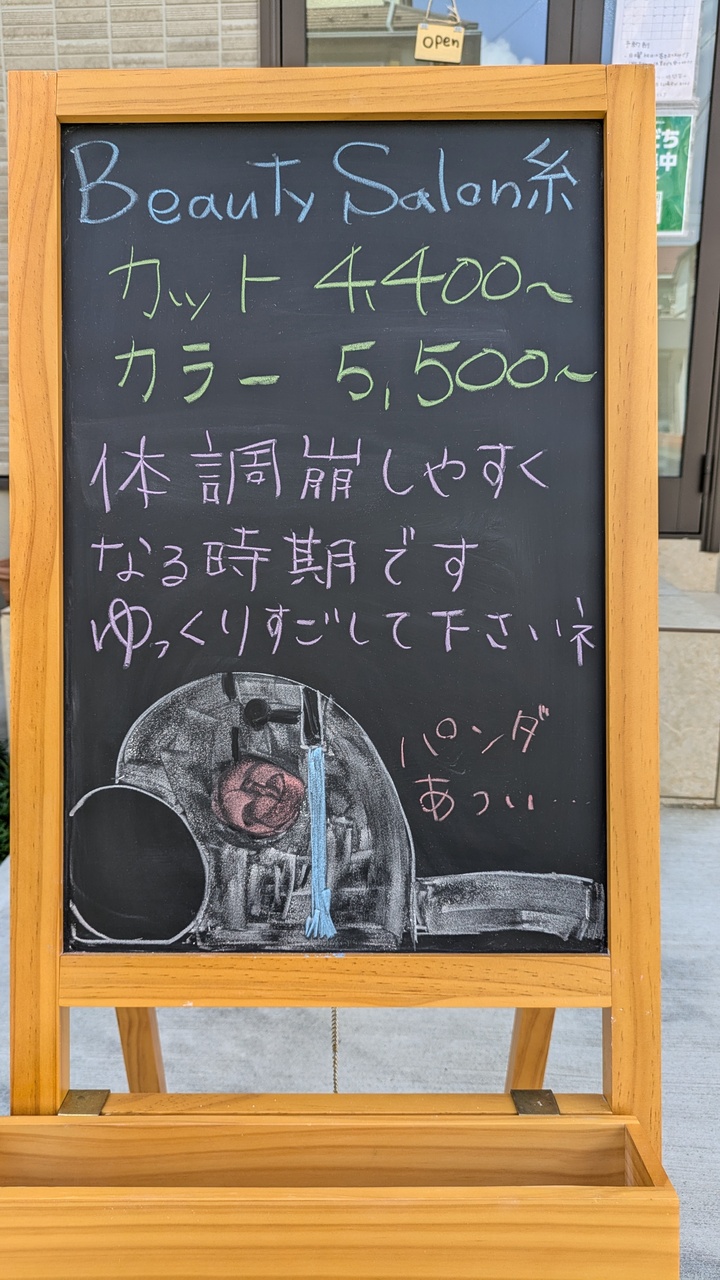 open
Beauty Salon 糸
カット 4,400〜
カラー 5,500〜
体調崩しやすく
なる時期です
ゆっくりすごして下さいネ
パンダ
あつい…